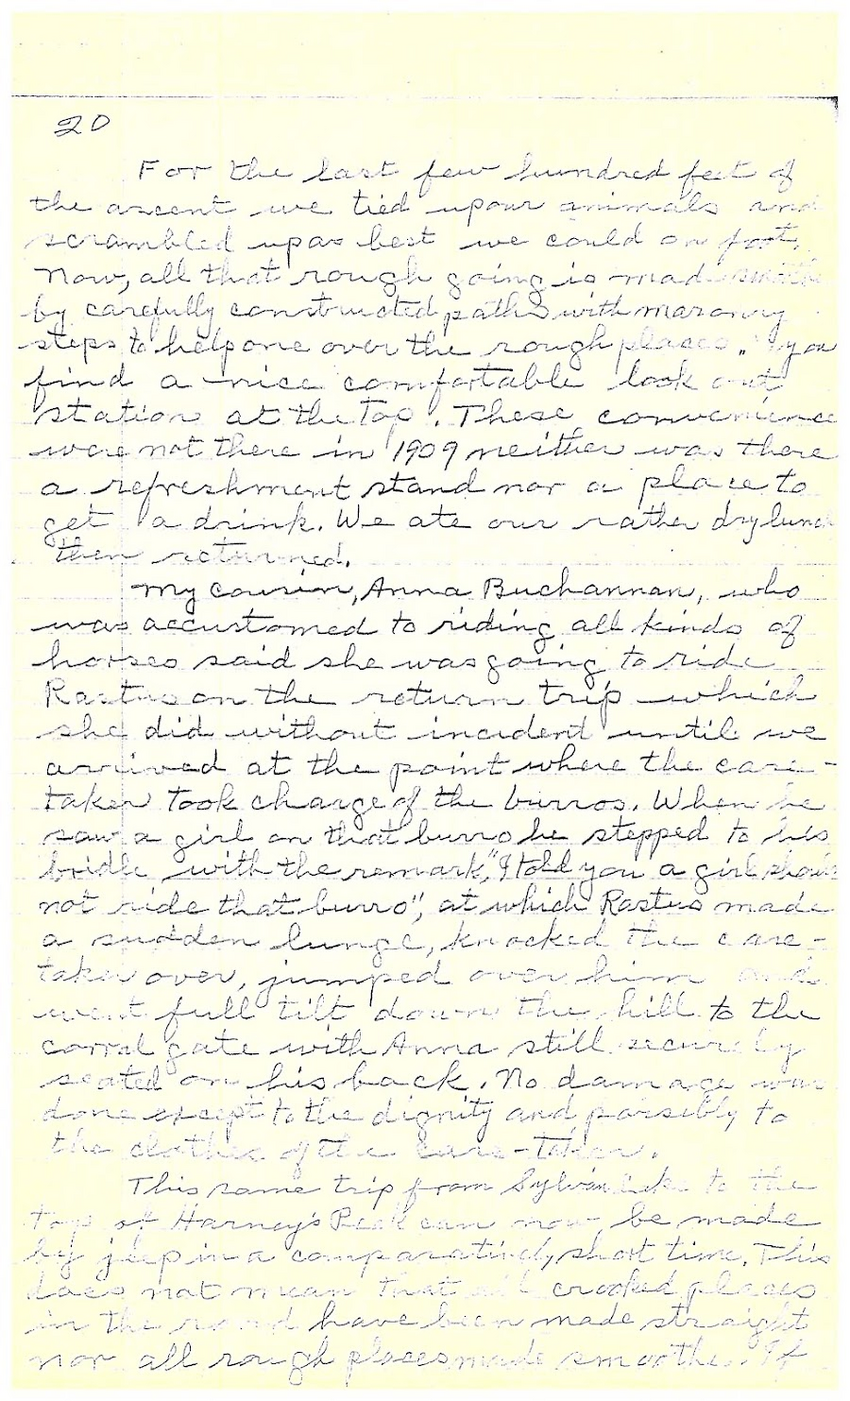 20
For the last few hundred feet of
the ascent we tied up our animals and
scrambled up as best we could on foot.
Now, all that rough going is made smooth
by carefully constructed paths with masonry
steps to help one over the rough places," you
find a nice comfortable look out
station at the top. These convenience
were not there in 1909 neither was there
a refreshment stand nor a place to
get a drink. We ate our rather dry lunch
then returned.
My cousin, Anna Buchannan, who
was accustomed to riding all kinds of
horses said she was going to ride
Rastus on the return trip which
she did without incident until we
arrived at the point where the care-
taker took charge of the burros. When he
saw a girl on that burro he stepped to his
bridle with the remark, "I told you a girl should
not ride that burro", at which Rastus made
a sudden lunge, knocked the care-
taker over, jumped over him and
went full tilt down the hill to the
corral gate with Anna still securely
seated on his back. No damage was
done except to the dignity and possibly to
the clothes of the care-taker.
This same trip from Sylvan Lake to the
top of Harney's Peak can now be made
by jeep in a comparatively short time. This
does not mean that all crooked places
in the road have been made straight
nor all rough places made smoothe. If